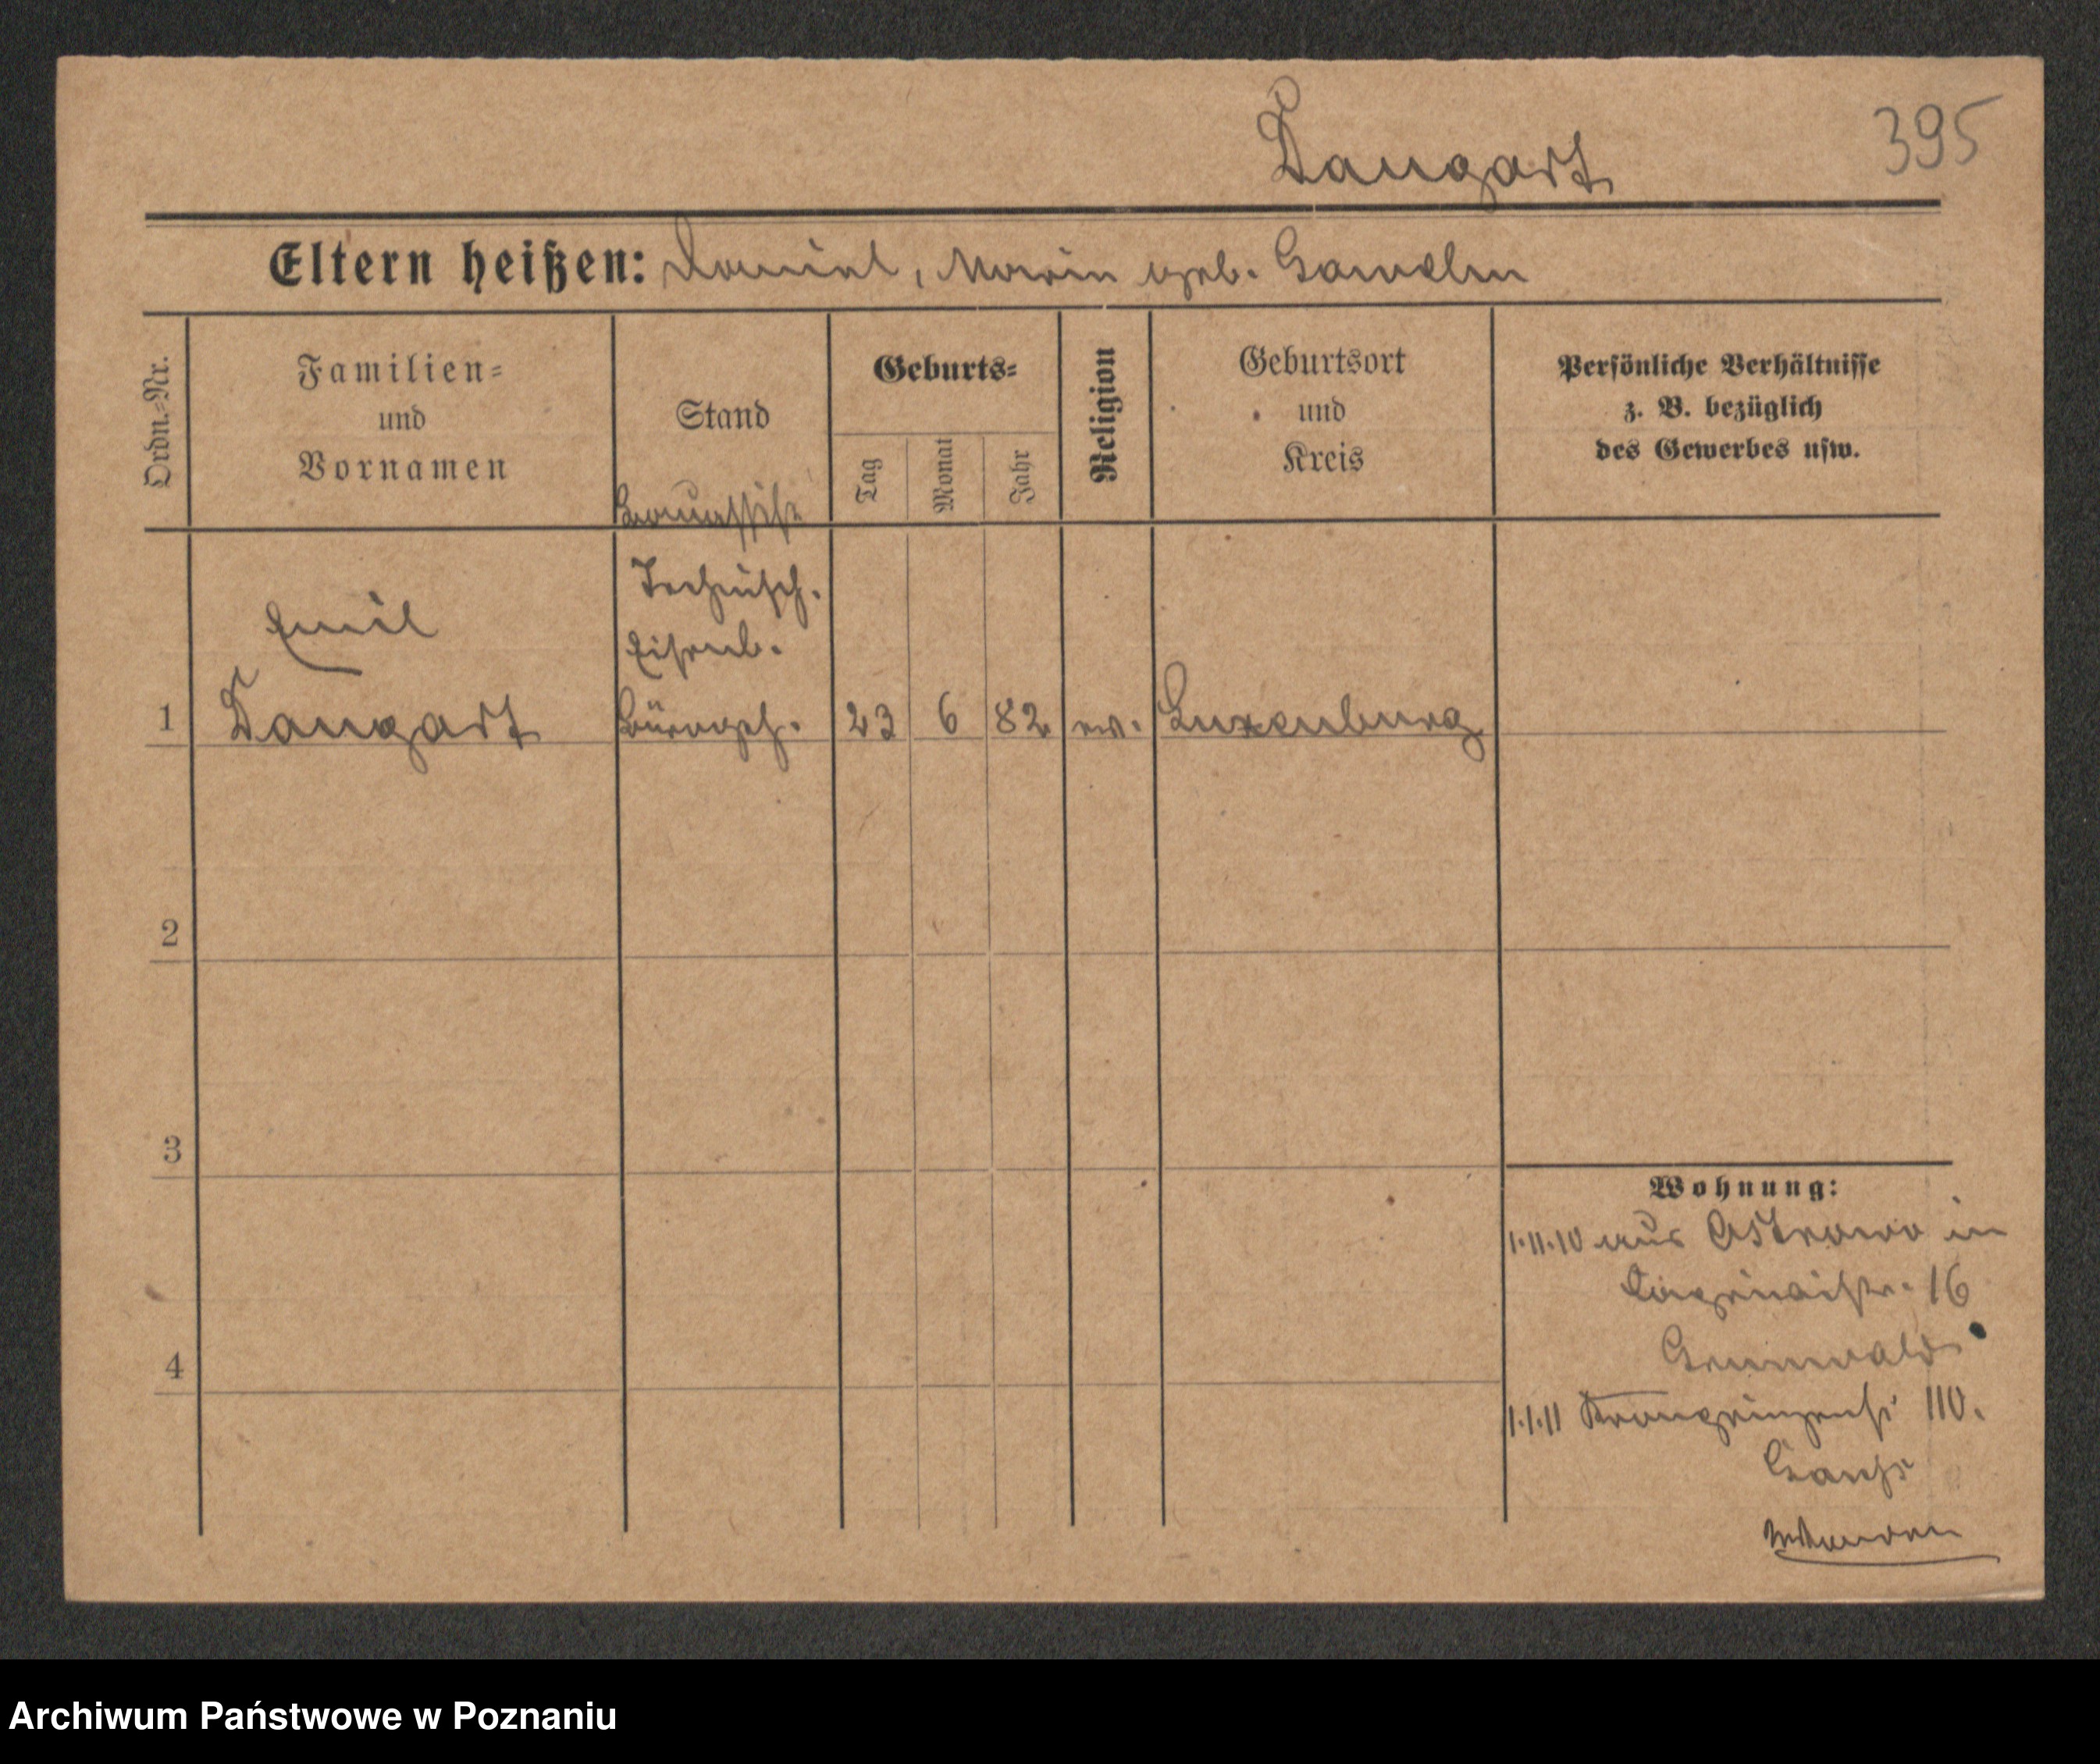 Dangart 395
Eltern heißen: Daniel, Marie geb.
Ordn.-Nr.
Familien-
und
Vornamen
Stand
Geburts-
Tag
Monat
Jahr
Religion
Geburtsort
und
Kreis
Persönliche Verhältnisse
z. B. bezüglich
des Gewerbes usw.
Technisch.
Emil
Eisenb.
1 Dangart Bürogeh. 23 6 82 ev. Luxenburg
2
3
4
Wohnung:
1.11.10 aus Ostrowo in
16
Grunwald
1.1.11 Kronprinzenst 110.
Archiwum Państwowe w Poznaniu